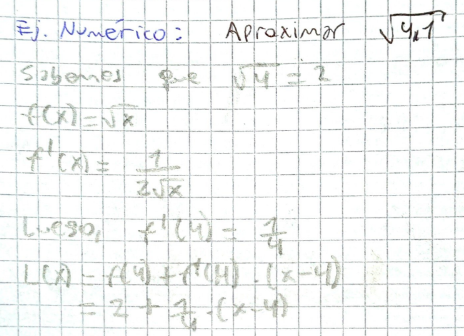 Ej. Numérico: Aproximar √4,1
Sabemos que √4 = 2
f(x) = √x
f'(x) = 1/(2√x)
Luego, f'(4) = 1/4
L(x) = f(4) + f'(4) · (x-4)
= 2 + 1/4 · (x-4)